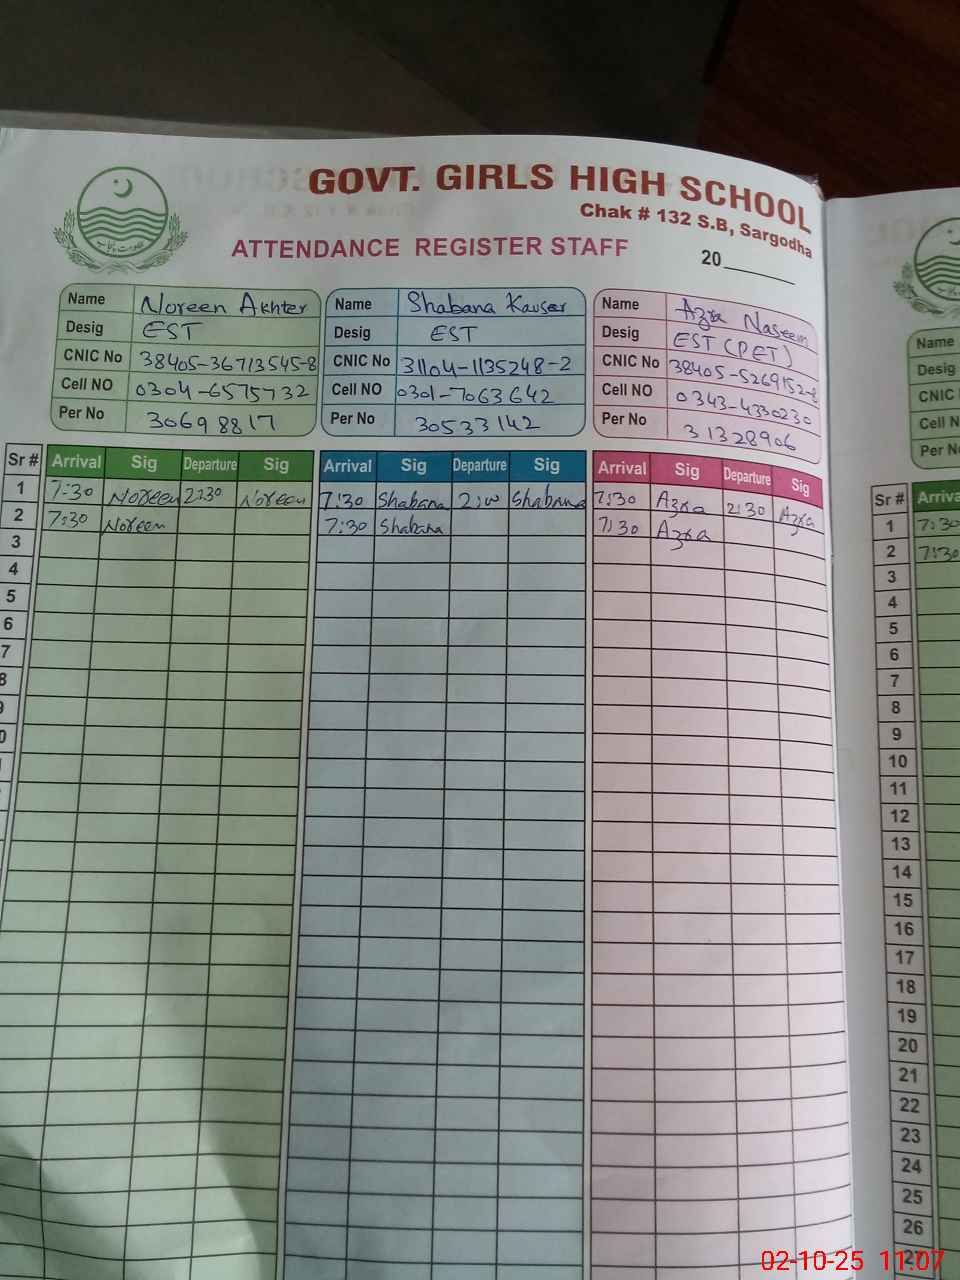 GOVT. GIRLS HIGH SCHOOL
Chak # 132 S.B, Sargodha
ATTENDANCE REGISTER STAFF
20
Name Noreen Akhter
Desig EST
CNIC No 38405-36713545-8
Cell NO 0304-6575732
Per No 30698817
Name Shabana Kauser
Desig EST
CNIC No 31104-1135248-2
Cell NO 0301-7063642
Per No 30533142
Name Azra Naseem
Desig EST (PET)
CNIC No 38405-5269152-8
Cell NO 0343-4330230
Per No 31328906
Sr # Arrival Sig Departure Sig Arrival Sig Departure Sig Arrival Sig Departure Sig
1 7:30 Noreen 2:30 Noreen 7:30 Shabana Shabana 7:30 Azra 2:30 Azra
2 7:30 Noreen 7:30 Shabana 7:30 Azra
3
4
5
6
7
8
Name
Desig
CNIC
Cell N
Per N
Sr # Arriva
1 7:30
2 7:30
3
4
5
6
7
8
9
10
11
12
13
14
15
16
17
18
19
20
21
22
23
24
25
26
27
02-10-25 11:07